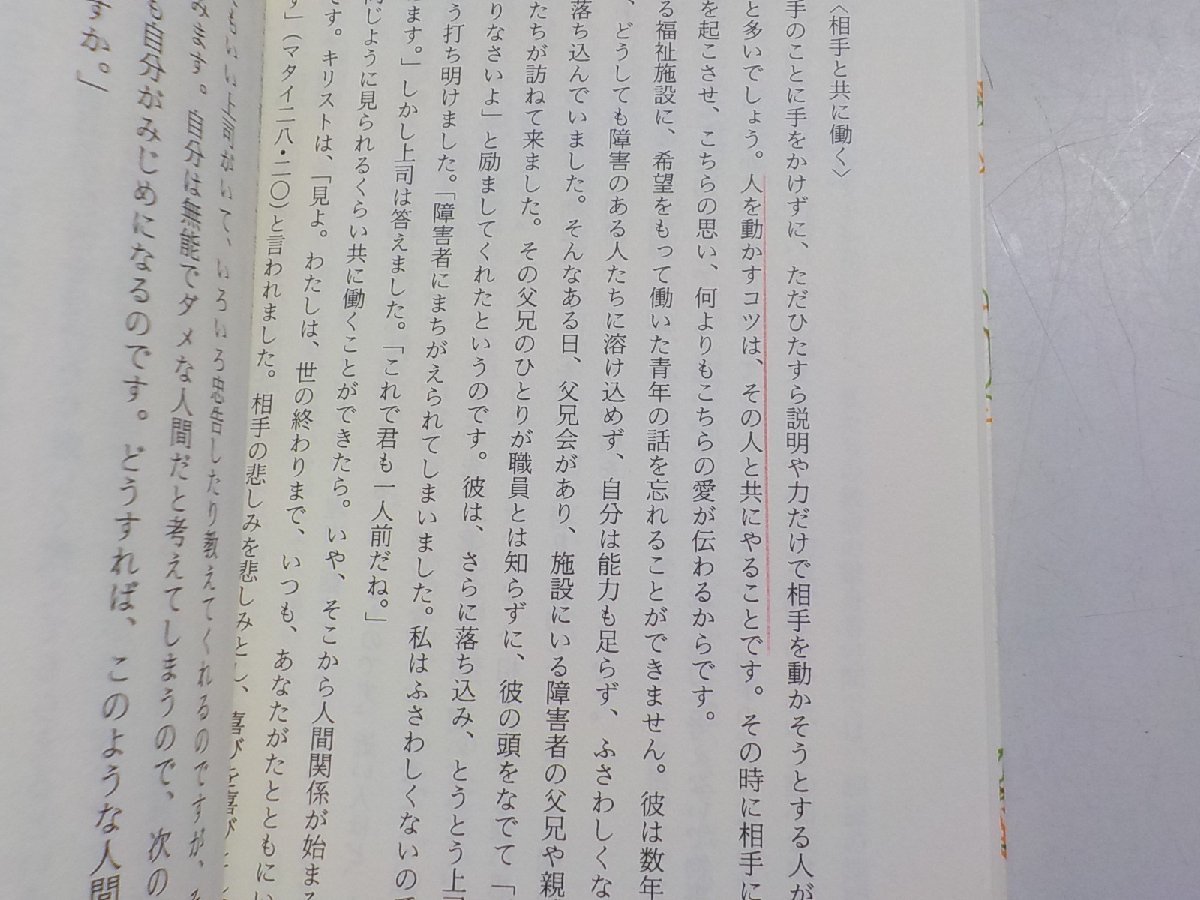 〈相手と共に働く〉
手のことに手をかけずに、ただひたすら説明や力だけで相手を動かそうとする人が
と多いでしょう。人を動かすコツは、その人と共にやることです。その時に相手に
を起こさせ、こちらの思い、何よりもこちらの愛が伝わるからです。
る福祉施設に、希望をもって働いた青年の話を忘れることができません。彼は数年
、どうしても障害のある人たちに溶け込めず、自分は能力も足らず、ふさわしくな
落ち込んでいました。そんなある日、父兄会があり、施設にいる障害者の父兄や親
たちが訪ねて来ました。その父兄のひとりが職員とは知らずに、彼の頭をなでて「
りなさいよ」と励ましてくれたというのです。彼は、さらに落ち込み、とうとう上
う打ち明けました。「障害者にまちがえられてしまいました。私はふさわしくないので
ます。」しかし上司は答えました。「これで君も一人前だね。」
同じように見られるくらい共に働くことができたら。いや、そこから人間関係が始まる
です。キリストは、「見よ。わたしは、世の終わりまで、いつも、あなたがたとともにい
す」（マタイ二八・二〇）と言われました。相手の悲しみを悲しみとし、喜びを喜びと
もいい上司がいて、いろいろ忠告したり教えてくれるのですが、
みます。自分は無能でダメな人間だと考えてしまうので、次の
も自分がみじめになるのです。どうすれば、このような人間
すか。」